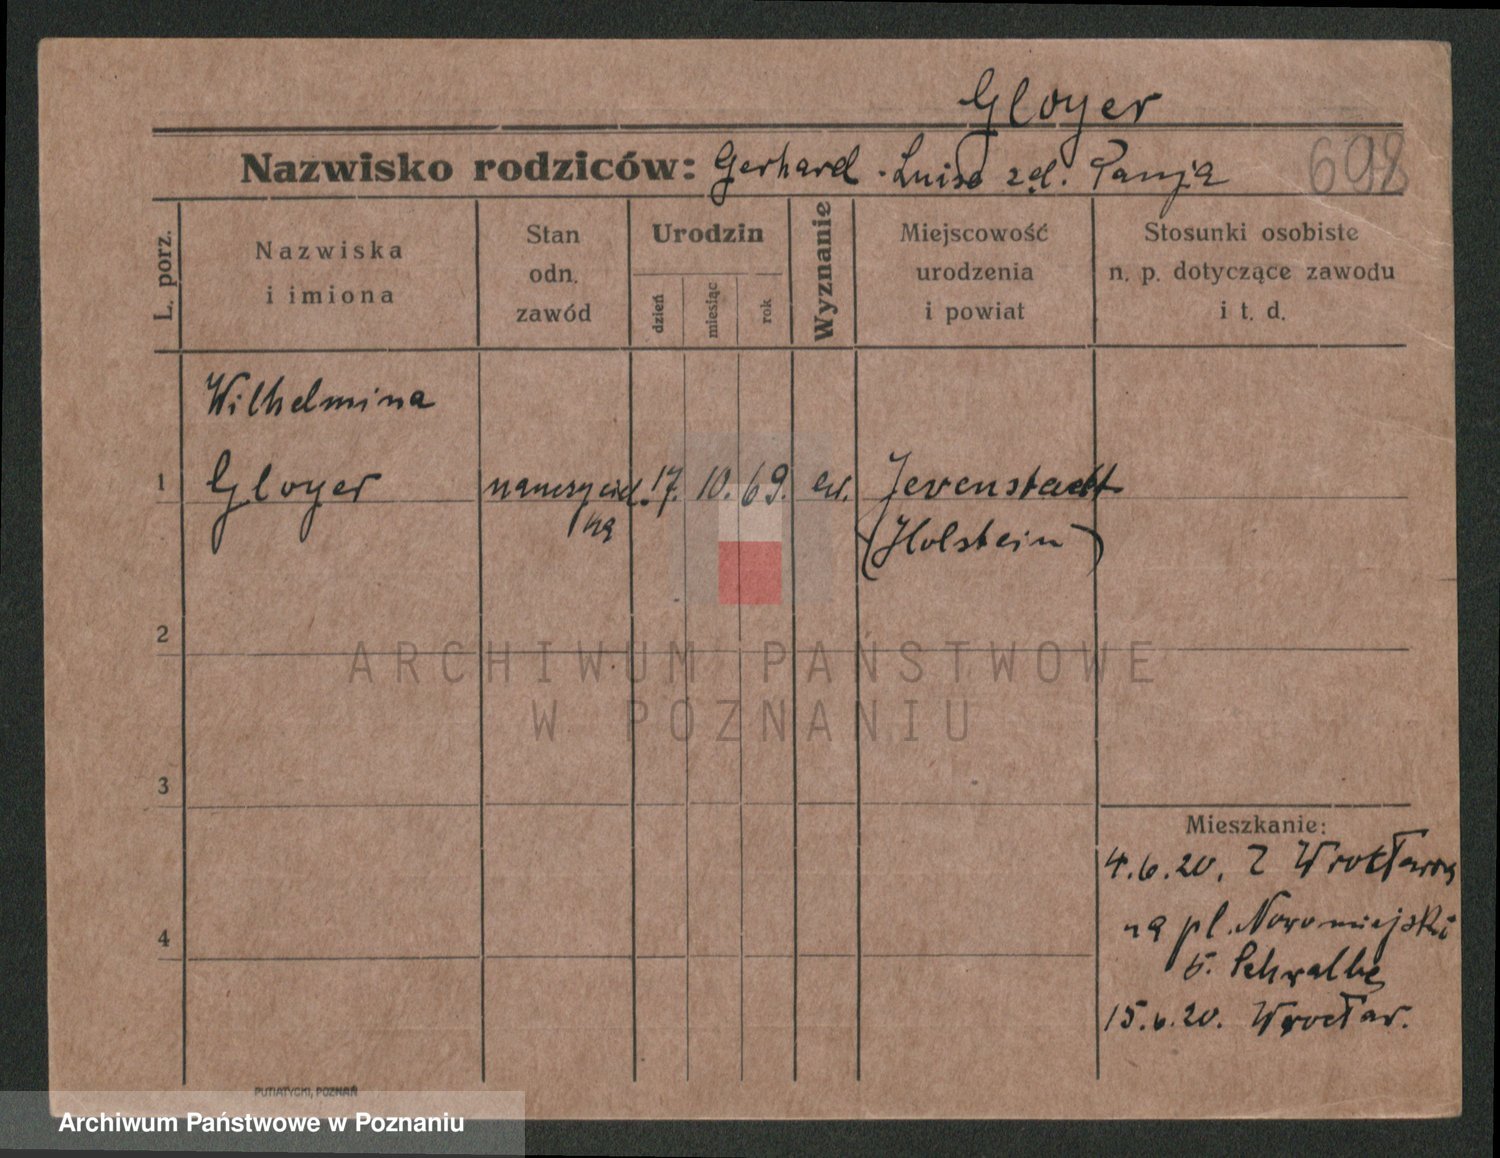 Gloyer
Nazwisko rodziców: Gerhard · Luise zd. Panja
698
L. porz.
Nazwiska
i imiona
Stan
odn.
zawód
Urodzin
dzień
miesiąc
rok
Wyznanie
Miejscowość
urodzenia
i powiat
Stosunki osobiste
n. p. dotyczące zawodu
i t. d.
Wilhelmina
1 Gloyer nauczyciel 17. 10. 69. ew. Jevenstedt
ka (Holstein)
2
ARCHIWUM PAŃSTWOWE
W POZNANIU
3
Mieszkanie:
4.6.20. Z Wrocławia
4
na pl. Nowomiejski
5. Schwalbe
15.6.20. Wrocław.
PUTIATYCKI, POZNAŃ
Archiwum Państwowe w Poznaniu